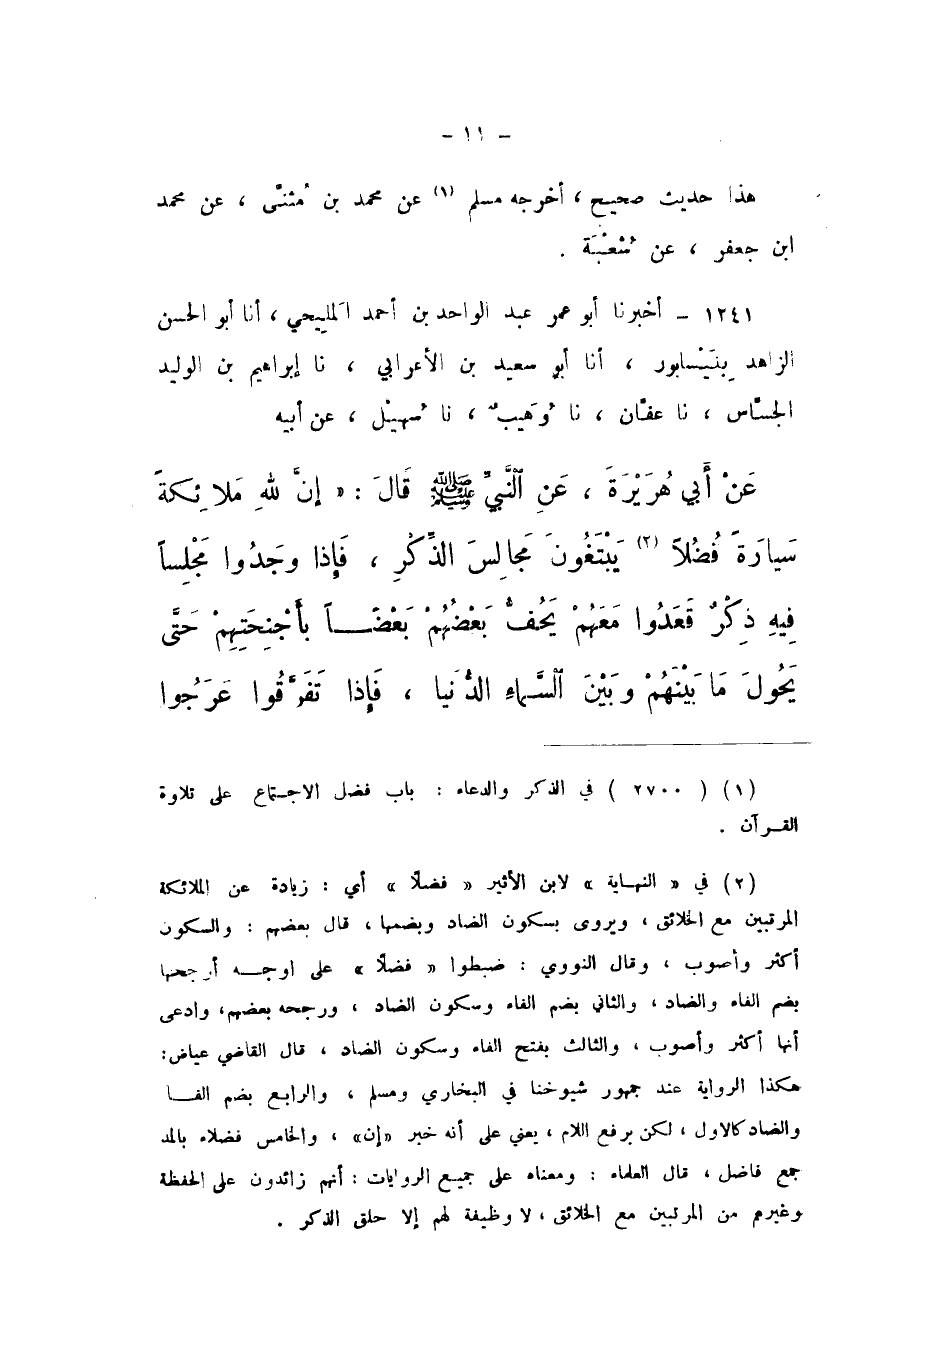 - ١١ -
هذا حديث صحيح ، أخرجه مسلم (١) عن محمد بن مُثنّى ، عن محمد
ابن جعفر ، عن شُعْبَة .
١٢٤١ - أخبرنا أبو عمر عبد الواحد بن أحمد المَليحي ، أنا أبو الحسن
الزاهد بِنَيْسابور ، أنا أبو سعيد بن الأعرابي ، نا إبراهيم بن الوليد
الجسّاس ، نا عفّان ، نا وُهَيبٌ ، نا سُهيْل ، عن أبيه
عَنْ أَبي هُرَيْرَةَ ، عَنِ ٱلنَّبيِّ ﷺ قَالَ : « إنَّ للهِ مَلائِكةً
سَيارَةً فُضُلاً (٢) يَبْتَغُونَ مَجالِسَ الذِّكْرِ ، فَإِذا وجَدُوا مَجْلِساً
فِيهِ ذِكْرٌ قَعَدُوا مَعَهُمْ يَحُفُّ بَعْضُهُمْ بَعْضَـــاً بأَجْنِحَتِهِمْ حَتَّى
يَحُولَ مَا بَيْنَهُمْ وبَيْنَ ٱلسَّماءِ الدُّنيا ، فَإِذا تَفَرَّقُوا عَرَجُوا
(١) ( ٢٧٠٠ ) في الذكر والدعاء : باب فضل الاجتماع على تلاوة
القـرآن .
(٢) في « النهـاية » لابن الأثير « فضلًا » أي : زيادة عن الملائكة
المرتبين مع الخلائق ، ويروى بسكون الضاد وبضمها ، قال بعضهم : والسكون
أكثر وأصوب ، وقال النووي : ضبطوا « فضلًا » على اوجــه أرجحها
بضم الفاء والضاد ، والثاني بضم الفاء وسكون الضاد ، ورجحه بعضهم، وادعى
أنها أكثر وأصوب ، والثالث بفتح الفاء وسكون الضاد ، قال القاضي عياض:
هكذا الرواية عند جمهور شيوخنا في البخاري ومسلم ، والرابع بضم الفـــا
والضاد كالاول ، لكن برفع اللام ، يعني على أنه خبر «إن» ، والخامس فضلاء بالمد
جمع فاضل ، قال العلماء : ومعناه على جميع الروايات : أنهم زائدون على الحفظة
وغيرم من المرتبين مع الخلائق ، لا وظيفة لهم إلا حلق الذكر .